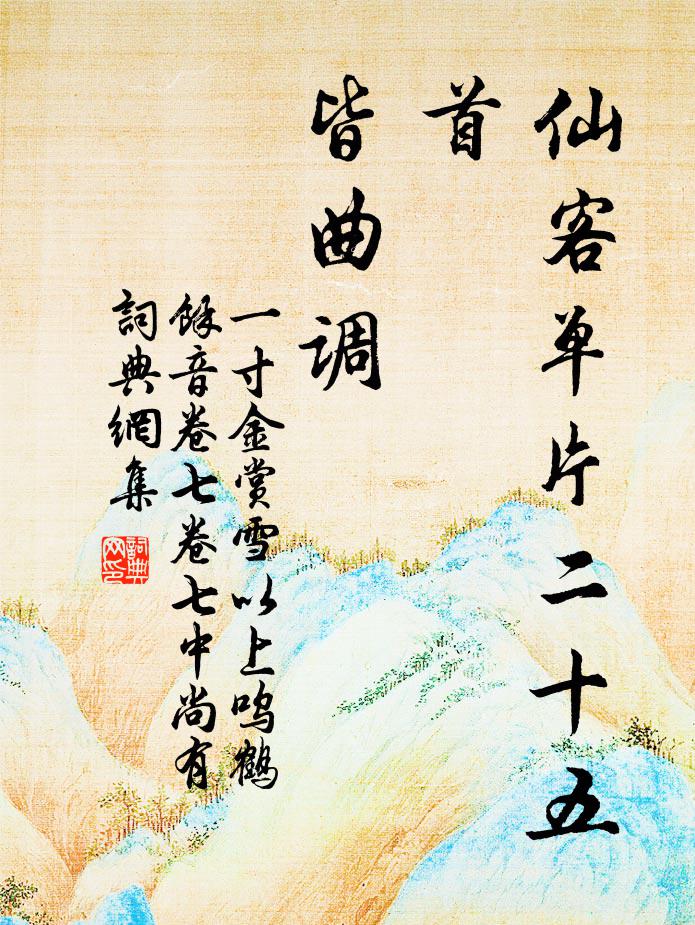 仙客单片二十五
首
皆曲调
一寸金赏雪以上鸣鹤
馀音卷七卷七中尚有
詞典網集
詞典
网印